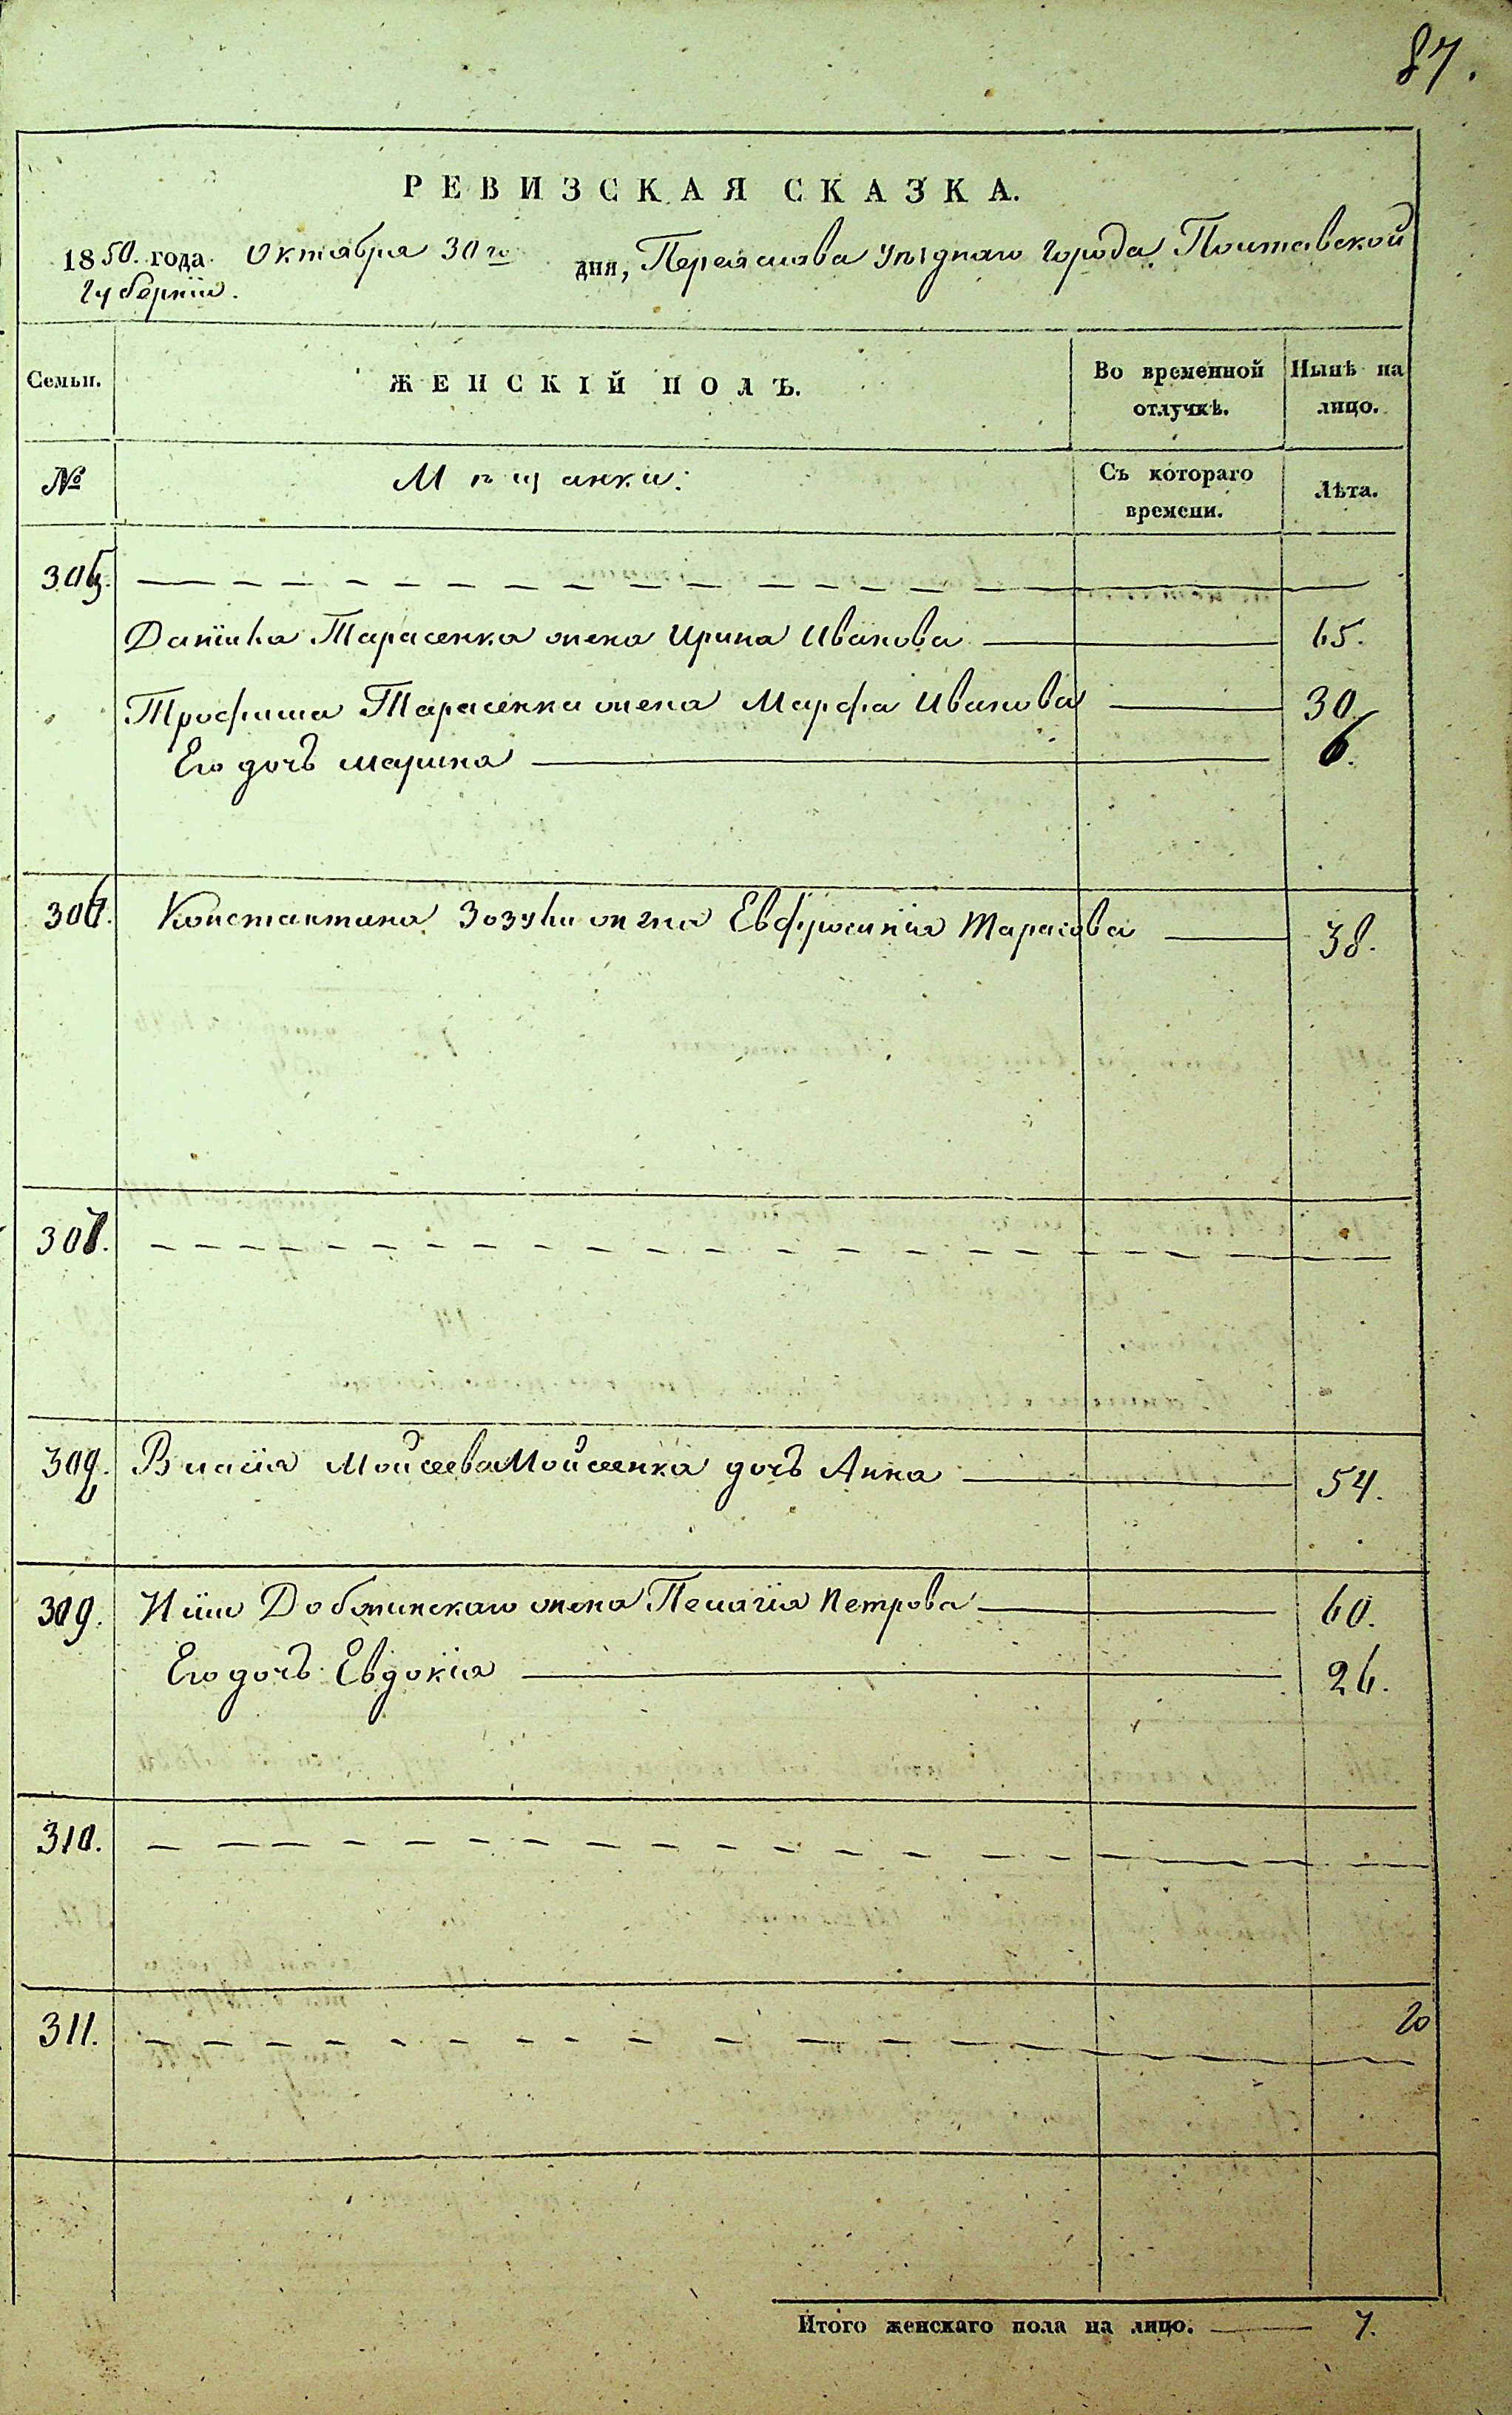 87.
РЕВИЗСКАЯ СКАЗКА.
1850. года Октября 30го дня, Переяслова уѣзднаго города Полтавской
Губерніи.
Семьи. ЖЕНСКІЙ ПОЛЪ. Во временной отлучкѣ. Нынѣ на лицо.
№ Мѣщанки: Съ котораго времени. Лѣта.
305.
Даніила Тарасенка жена Ирина Иванова 65.
Трофима Тарасенка жена Марфа Иванова 30.
Его дочь Марина 6.
306. Константина Зозули жена Евфросинія Тарасова 38.
307.
Власія Мойсеева Мойсеенка дочь Анна 54.
309. Иліи Добжинскаго жена Пелагія Петрова 60.
Его дочь Евдокія 26.
310.
311.
Итого женскаго пола на лицо. 7.